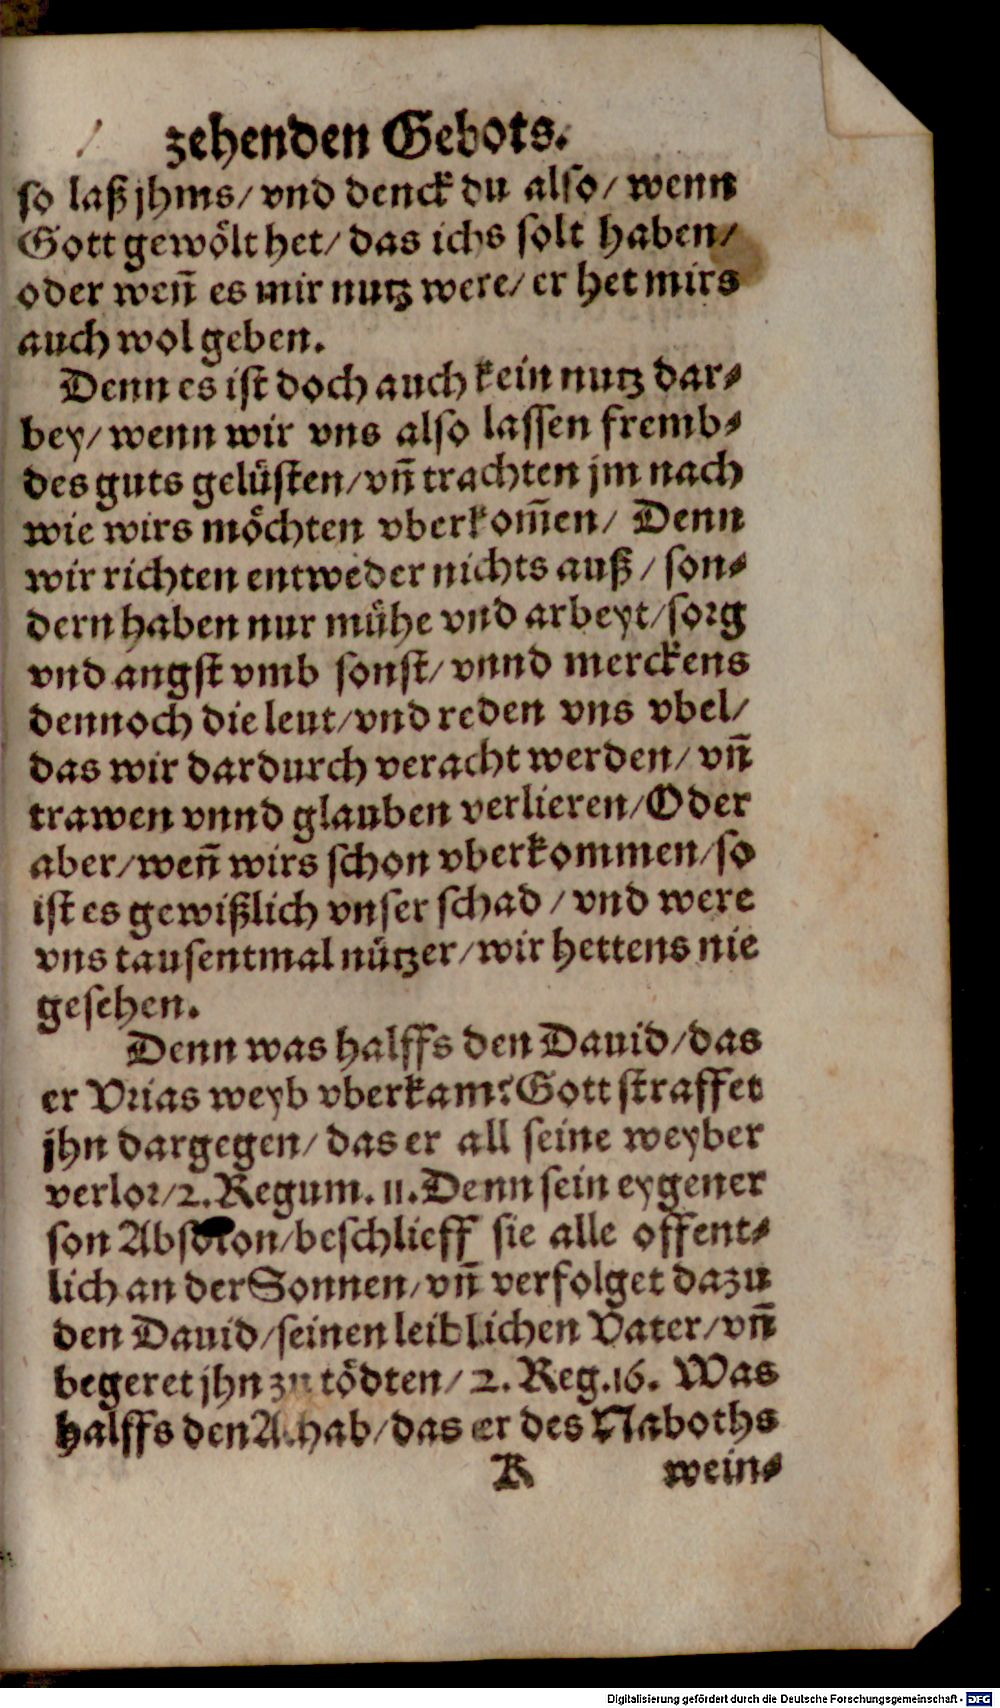 zehenden Gebots.
so laß jhms/ vnd denck du also/ wenn
Gott gewoͤlt het/ das ichs solt haben/
oder weñ es mir nutz were/ er het mirs
auch wol geben.
Denn es ist doch auch kein nutz dar⸗
bey/ wenn wir vns also lassen fremb⸗
des guts geluͤsten/ vñ trachten jm nach
wie wirs moͤchten vberkom̃en/ Denn
wir richten entweder nichts auß/ son⸗
dern haben nur muͤhe vnd arbeyt/ sorg
vnd angst vmb sonst/ vnnd merckens
dennoch die leut/ vnd reden vns vbel/
das wir dardurch veracht werden/ vñ
trawen vnnd glauben verlieren/ Oder
aber/ weñ wirs schon vberkommen/ so
ist es gewißlich vnser schad/ vnd were
vns tausentmal nuͤtzer/ wir hettens nie
gesehen.
Denn was halffs den Dauid/ das
er Vrias weyb vberkam? Gott straffet
jhn dargegen/ das er all seine weyber
verlor/ 2. Regum. 11. Denn sein eygener
son Absolon/ beschlieff sie alle offent⸗
lich an der Sonnen/ vñ verfolget dazu
den Dauid/ seinen leiblichen Vater/ vñ
begeret jhn zu toͤdten/ 2. Reg. 16. Was
halffs den Ahab/ das er des Naboths
K wein⸗
Digitalisierung gefördert durch die Deutsche Forschungsgemeinschaft - DFG